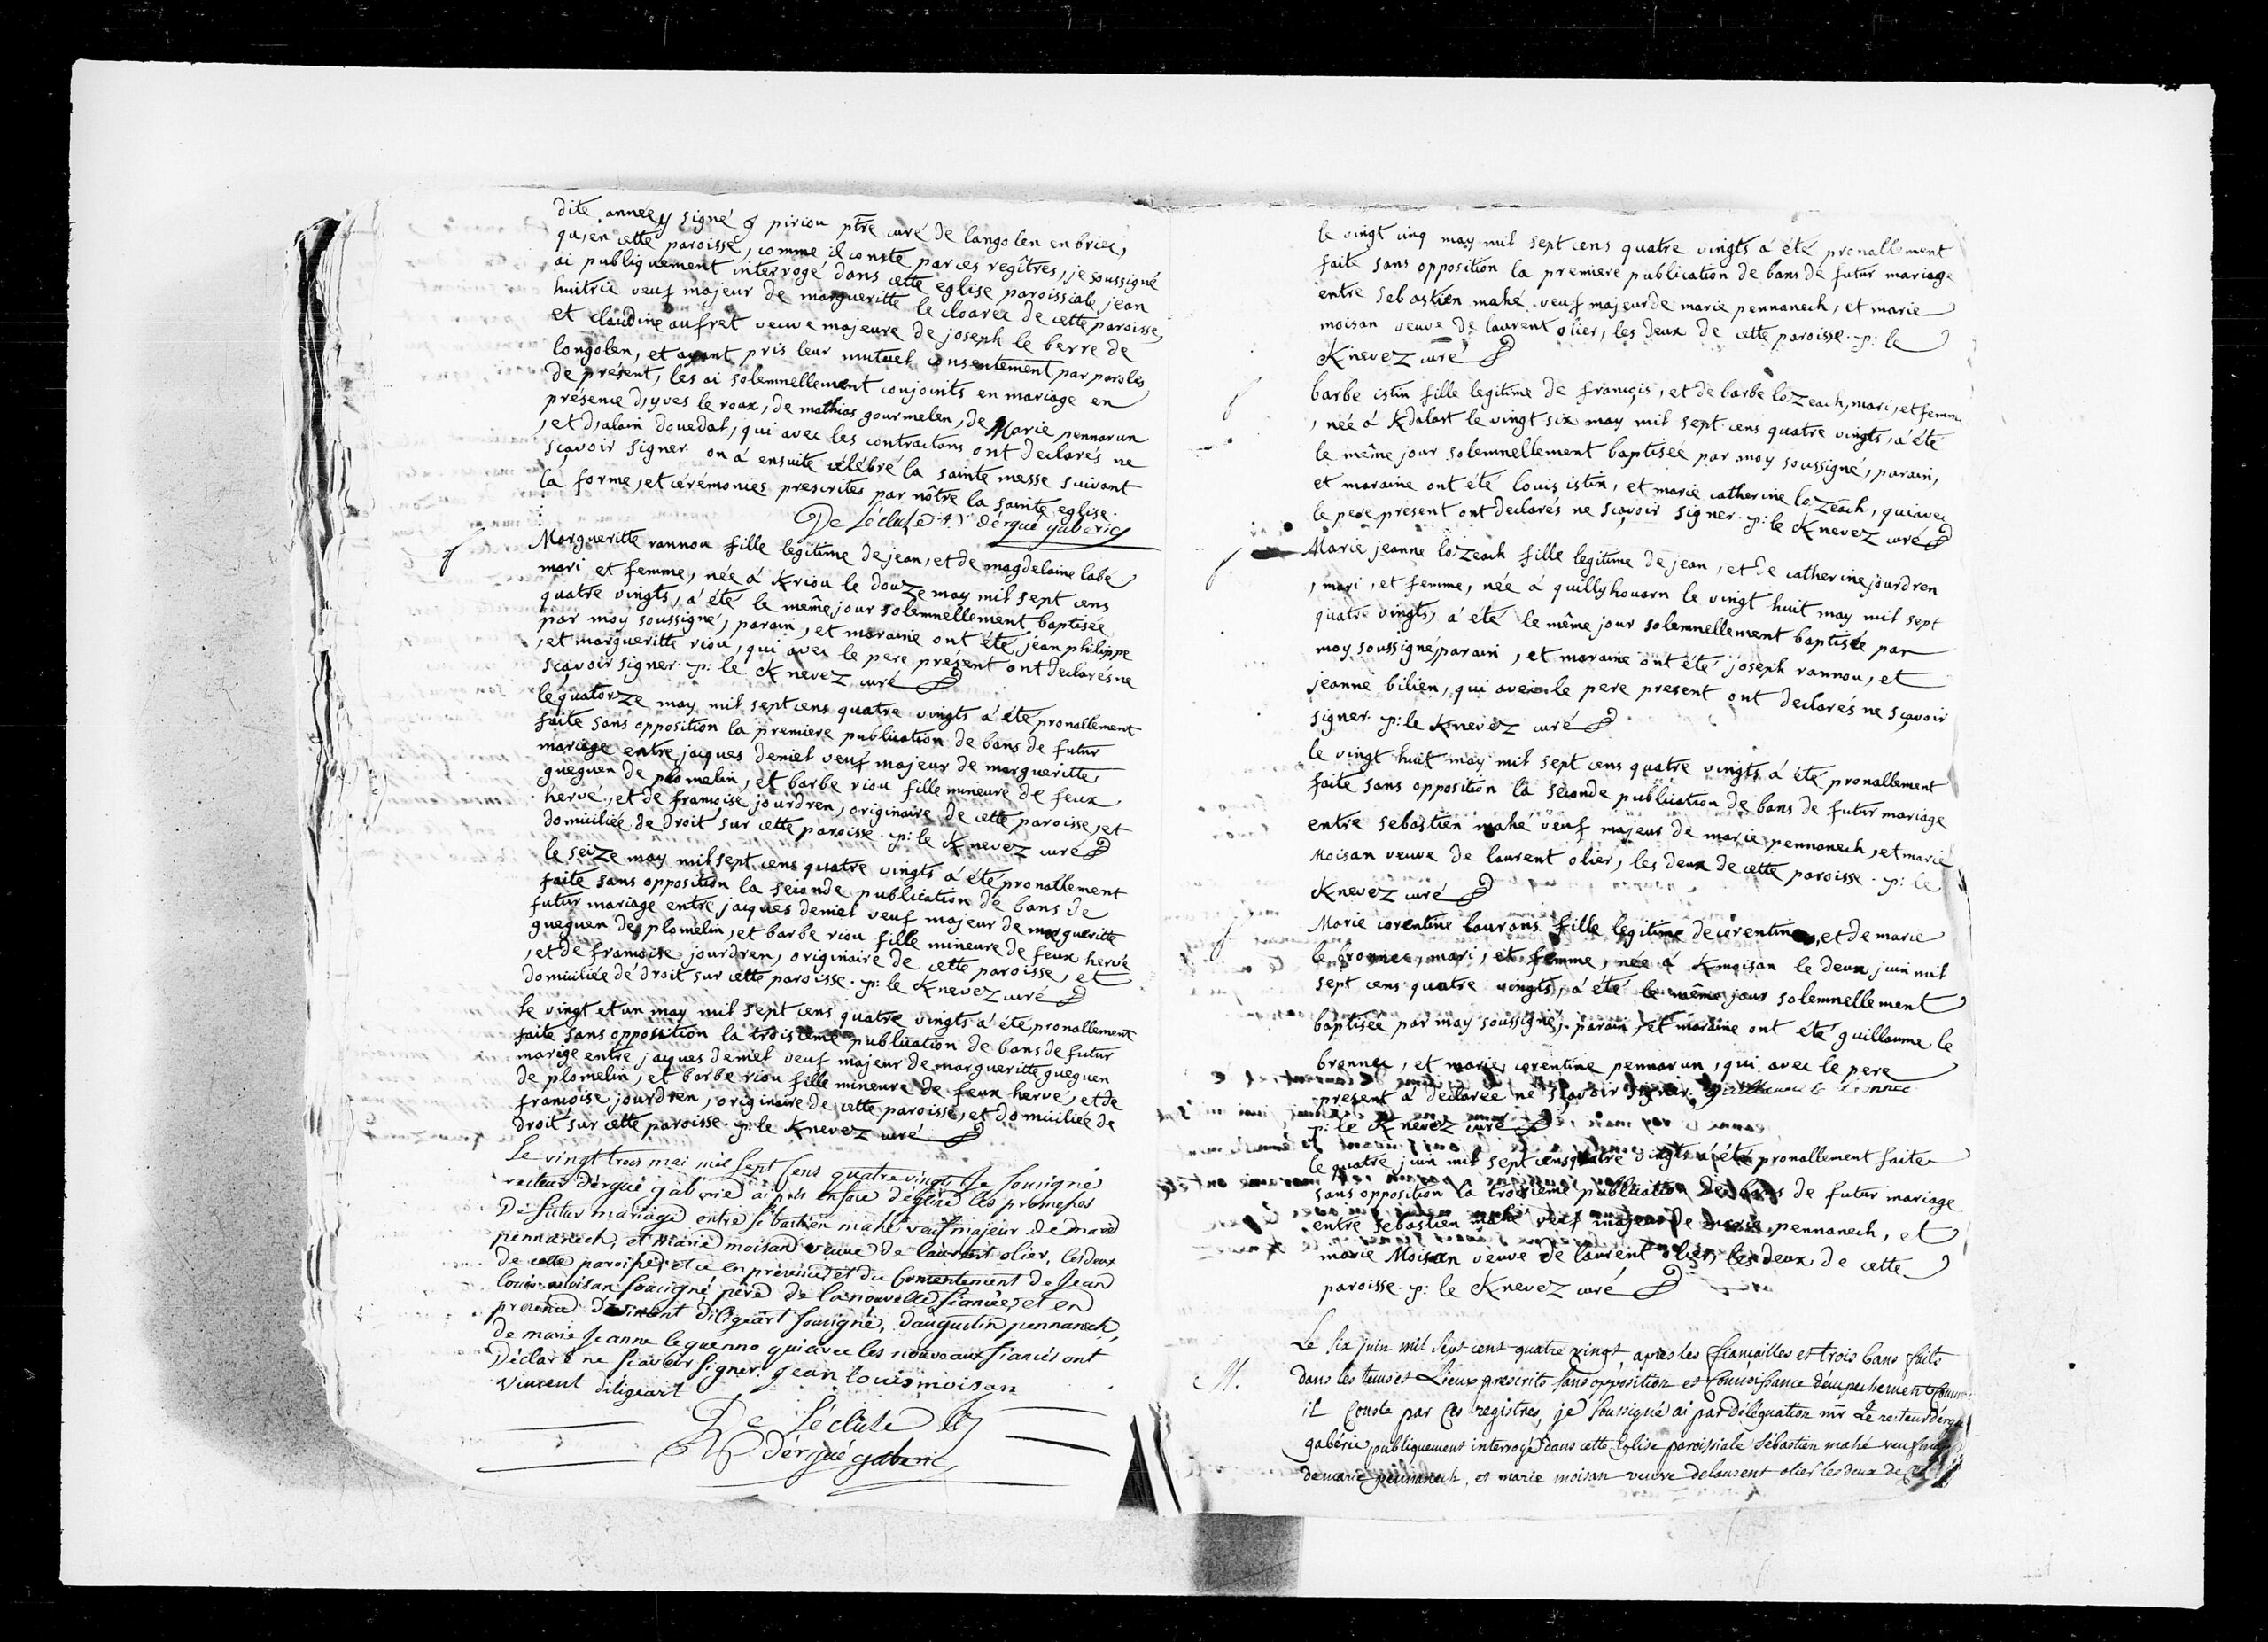 dite année signé y piriou ptre curé de langolen en briec,
qu,en cette paroisse, comme il conste par ces regîtres, je soussigné
ai publiquement interrogé dans cette eglise paroissiale jean
huitric veuf majeur de margueritte le cloarec de cette paroisse,
et claudine aufret veuve majeure de joseph le berre de
langolen, et ayant pris leur mutuel consentement par paroles
de présent, les ai solemnellement conjoints en mariage en
présence d,yves le roux, de mathias gourmelen, de Marie pennarun
, et d,alain douedal, qui avec les contractans ont declarés ne
sçavoir signer. on á ensuite célébré la sainte messe suivant
la forme, et cérémonies prescrites par nôtre la sainte eglise.
De Lécluse r. dérgué gaberic
Margueritte rannou fille legitime de jean, et de magdelaine labé
mari et femme, née á Kriou le douze may mil sept cens
quatre vingts, á été le même jour solemnellement baptisée
par moy soussigné, parain, et maraine ont été jean philippe
, et margueritte riou, qui avec le pere présent ont declarés ne
sçavoir signer. p: le Knevez curé
le quatorze may mil sept cens quatre vingts á été pronallement
faite sans opposition la premiere publication de bans de futur
mariage entre jacques deniel veuf majeur de margueritte
gueguen de plomelin, et barbe riou fille mineure de feux
hervé, et de françoise jourdren, originaire de cette paroisse, et
domiciliée de droit sur cette paroisse. p: le Knevez curé
le seize may mil sept cens quatre vingts á été pronallement
faite sans opposition la seconde publication de bans de
futur mariage entre jacques deniel veuf majeur de margueritte
gueguen de plomelin, et barbe riou fille mineure de feux hervé
, et de françoise jourdren, originaire de cette paroisse, et
domiciliée de droit sur cette paroisse. p: le Knevez curé
le vingt et un may mil sept cens quatre vingts á été pronallement
faite sans opposition la troisieme publication de bans de futur
marige entre jacques deniel veuf majeur de margueritte gueguen
de plomelin, et barbe riou fille mineure de feux hervé, et de
françoise jourdren, originaire de cette paroisse, et domiciliée de
droit sur cette paroisse. p: le Knevez curé
Le vingt trois mai mil sept cens quatre vingts Je sousigné
recteur dérgué gaberic ai pris en face d'église les promesses
De futur mariage entre sébastien mahé veuf majeur de marie
pennanech, et Marie moisan veuve de laurent olier, les deux
de cette paroisse, et ce en présence et du Consentement de Jean
louis moisan sousigné père de la nouvelle fiancée, et en
présence de vincent diligeart sousigné, d'augustin pennanech,
de marie Jeanne leguenno qui avec les nouveaux fiancés ont
Déclaré ne sçavoir signer. Jean louis moisan
vincent diligeart
De Lécluse
dérgué gaberic
le vingt cinq may mil sept cens quatre vingts á été pronallement
faite sans opposition la premiere publication de bans de futur mariage
entre sebastien mahé veuf majeur de marie pennanech, et marie
moisan veuve de laurent olier, les deux de cette paroisse. p: le
Knevez curé
barbe istin fille legitime de françois, et de barbe lozeach, mari, et femme
, née á Kdalart le vingt six may mil sept cens quatre vingts, á été
le même jour solemnellement baptisée par moy soussigné, parain,
et maraine ont été louis istin, et marie catherine lozeach, qui avec
le pere present ont declarés ne sçavoir signer. p: le Knevez curé
Marie jeanne lozeach fille legitime de jean, et de catherine jourdren
, mari, et femme, née á quillyhouarn le vingt huit may mil sept
quatre vingts, á été le même jour solemnellement baptisée par
moy soussigné, parain, et maraine ont été joseph rannou, et
jeanne bilien, qui avec le pere present ont declarés ne sçavoir
signer. p: le Knevez curé
le vingt huit may mil sept cens quatre vingts á été pronallement
faite sans opposition la seconde publication de bans de futur mariage
entre sebastien mahé veuf majeur de marie pennanech, et marie
Moisan veuve de laurent olier, les deux de cette paroisse. p: le
Knevez curé
Marie corentine laurans fille legitime de corentin, et de marie
le bronnec, mari, et femme, née á Kmoisan le deux juin mil
sept cens quatre vingts, á été le même jour solemnellement
baptisée par moy soussigné, parain, et maraine ont été guillaume le
bronnec, et marie corentine pennarun, qui avec le pere
present á declarée ne sçavoir signer. guillaume le bronnec
p: le Knevez curé
le quatre juin mil sept cens quatre vingts á été pronallement faite
sans opposition la troisieme publication de bans de futur mariage
entre sebastien mahé veuf majeur de marie pennanech, et
marie Moisan veuve de laurent olier, les deux de cette
paroisse. p: le Knevez curé
Le six juin mil sept cent quatre vingt, après les fiançailles et trois bans faits
M. dans les tems et Lieux prescrits sans opposition et Connoissance d'empechement
il Conste par Ces registres, je soussigné ai par Déléguation mr Le recteur dérgué
gabéric publiquement interrogé dans cette Eglise paroissiale sébastien mahé veuf
de marie pennanech, et marie moisan veuve de laurent olier les deux de